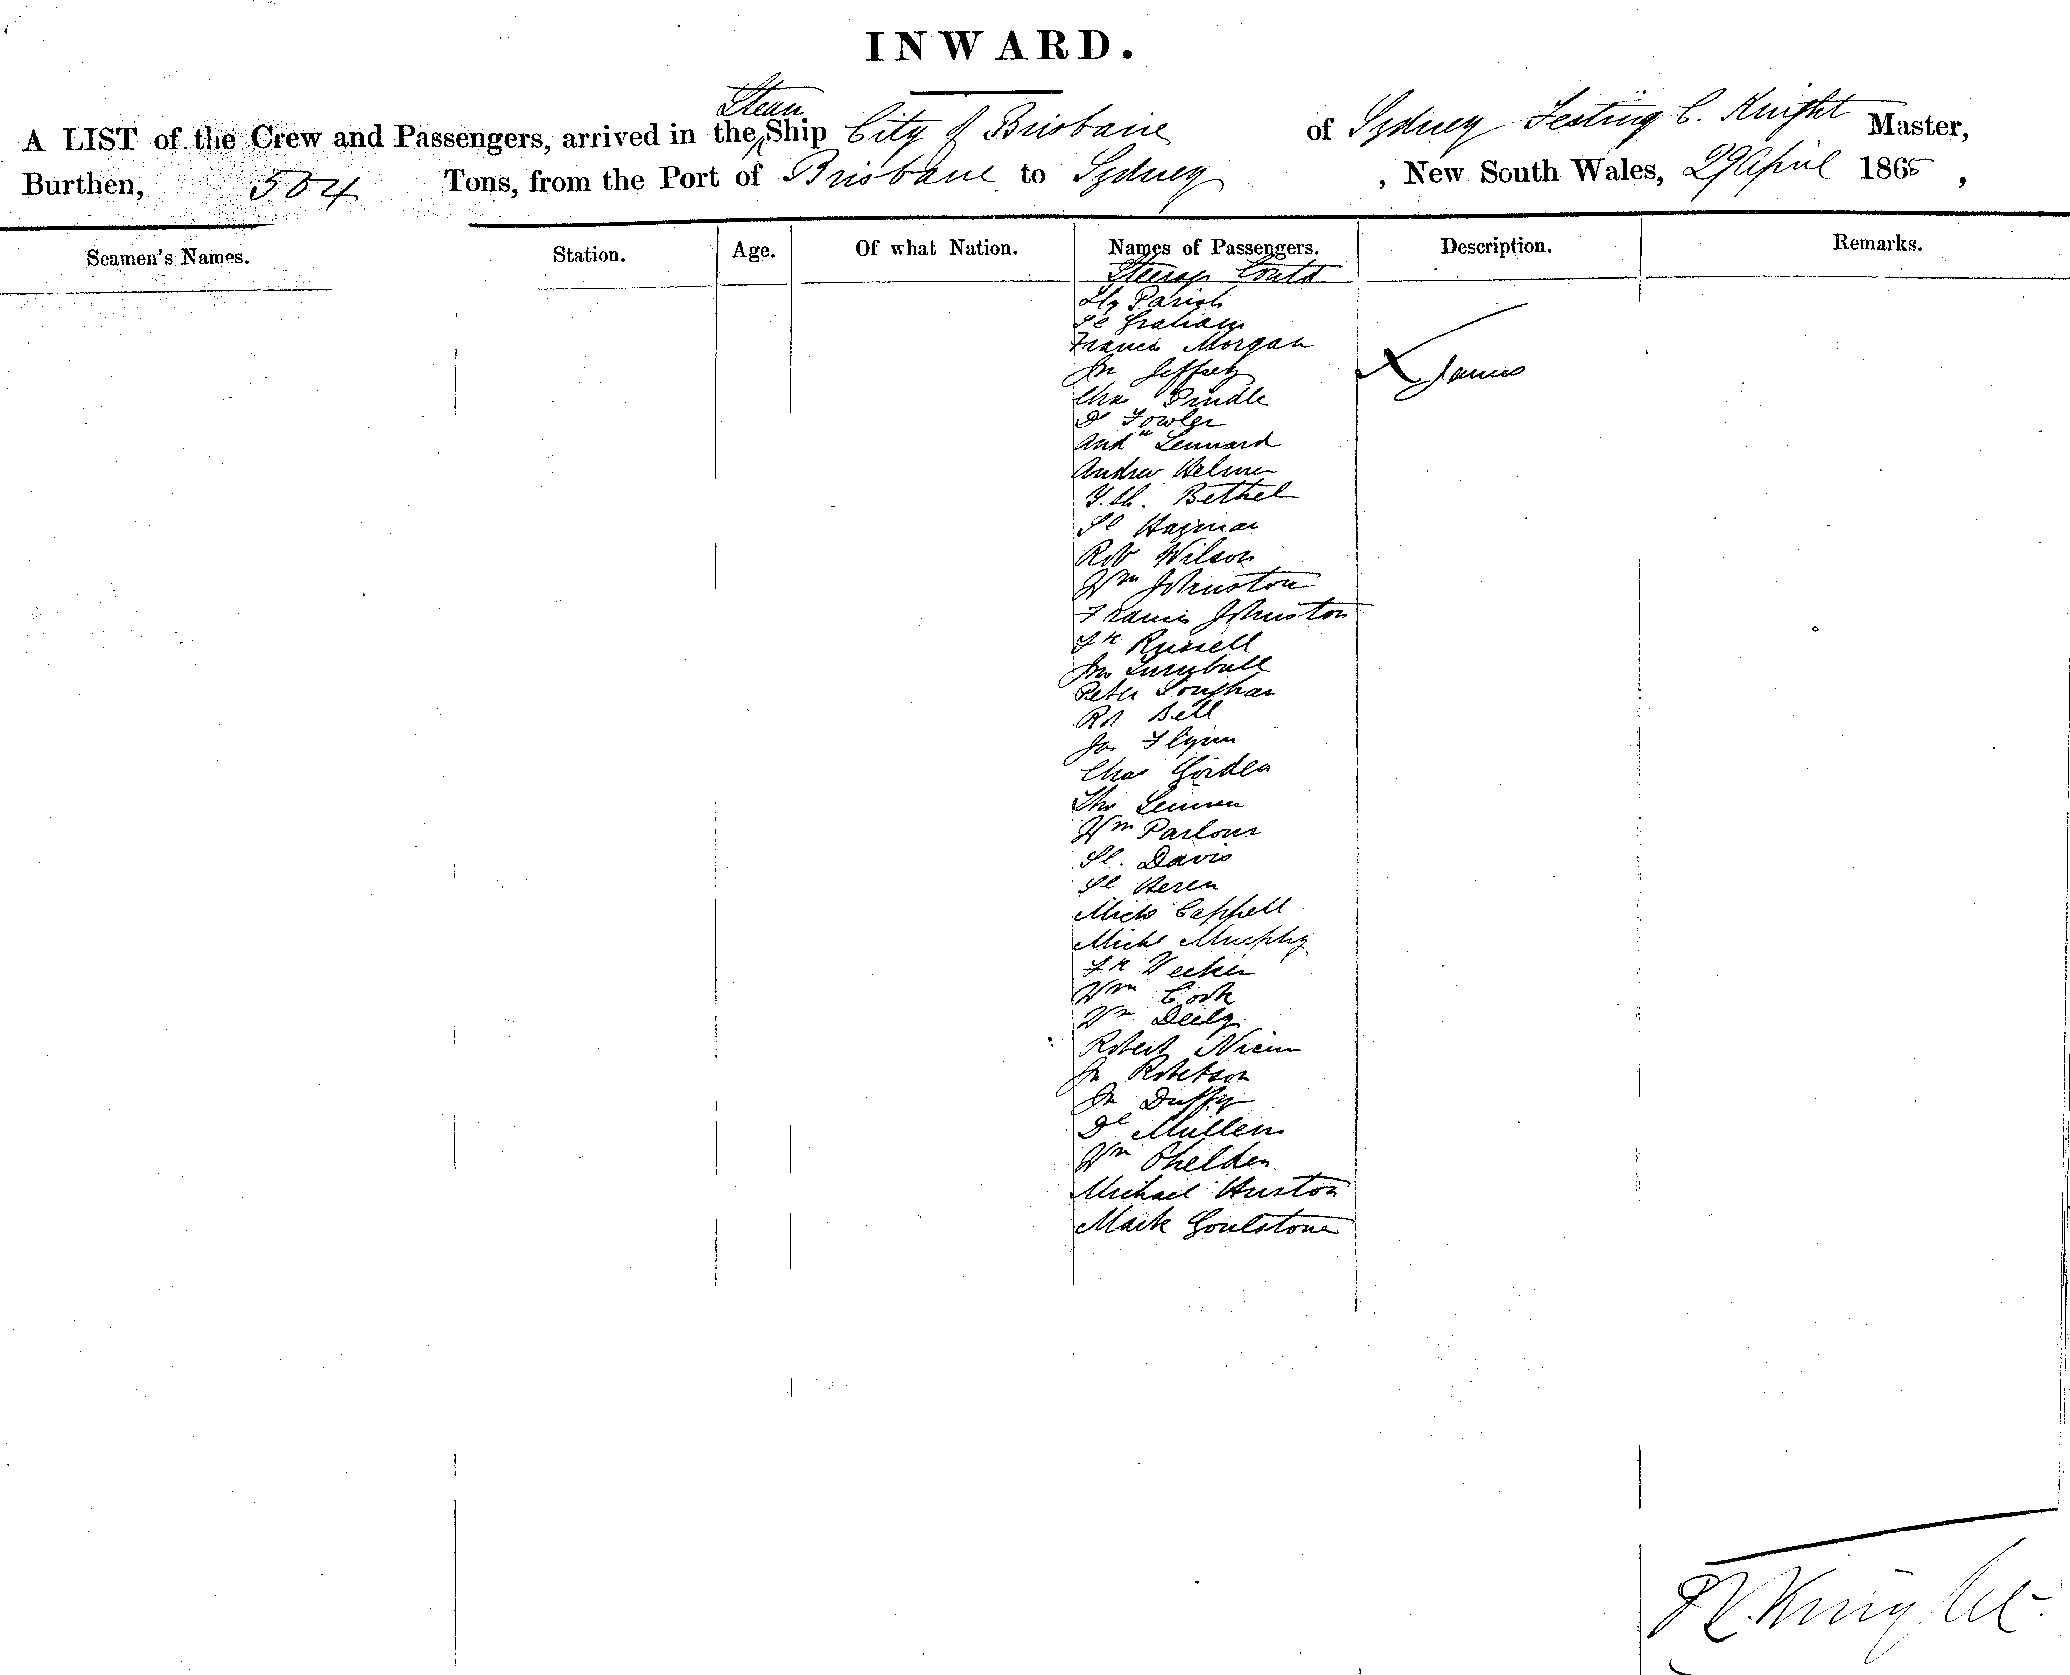 INWARD.
A LIST of the Crew and Passengers, arrived in the Steam Ship City of Brisbane of Sydney Festing C. Knight Master,
Burthen, 504 Tons, from the Port of Brisbane to Sydney, New South Wales, 29 April 1865,
Seamen's Names. Station. Age. Of what Nation. Names of Passengers. Description. Remarks.
Steerage
Parish
Graham
Francis Morgan
Jn Jeffrey James
Chas Prindle
D Fowler
Andw Lennard
Andrew
Bethel
Sl Hayman
Rob Wilson
Wm Johnston
Francis Johnston
Fk Russell
Jn Turnbull
Peter
Rt Bell
Jas Flynn
Chas Gorden
Thos
Wm Parlour
Sl. Davis
Sl Heren
Mich Cappell
Michl Murphy
Fk
Wm Cook
Wm Deily
Robert
Jn Robetson
Jn Duffy
Dl Mullen
Wm Chelden
Michael Huston
Mark Goulstone
F C. Knight